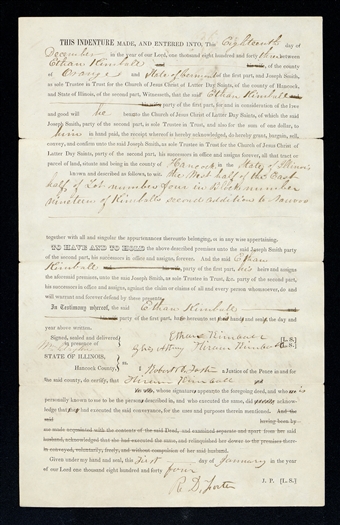 THIS INDENTURE MADE, AND ENTERED INTO, This Eighteenth day of
December in the year of our Lord, one thousand eight hundred and forty three between
Ethan Kimball of the county
of Orange and State of Vermont of the first part, and Joseph Smith,
as sole Trustee in Trust for the Church of Jesus Christ of Latter Day Saints, of the county of Hancock,
and State of Illinois, of the second part, Witnesseth, that the said Ethan Kimball
party of the first part, for and in consideration of the love
and good will he bears the Church of Jesus Christ of Latter Day Saints, of which the said
Joseph Smith, party of the second part, is sole Trustee in Trust, and for the sum of one dollar, to
him in hand paid, the receipt whereof is hereby acknowledged, do hereby grant, bargain, sell,
convey, and confirm unto the said Joseph Smith, as sole Trustee in Trust for the Church of Jesus Christ of
Latter Day Saints, party of the second part, his successors in office and assigns forever, all that tract or
parcel of land, situate and being in the county of Hancock in the State of Illinois
known and described as follows, to wit. The West half of the East
half of Lot number four in Block number
nineteen of Kimballs second additions to Nauvoo
together with all and singular the appurtenances thereunto belonging, or in any wise appertaining.
TO HAVE AND TO HOLD the above described premises unto the said Joseph Smith party
of the second part, his successors in office and assigns, forever. And the said Ethan
Kimball party of the first part, his heirs and assigns
the aforesaid premises, unto the said Joseph Smith, as sole Trustee in Trust, &c. party of the second part,
his successors in office and assigns, against the claim or claims of all and every person whomsoever, do and
will warrant and forever defend by these presents.
In Testimony whereof, the said Ethan Kimball
party of the first part, hereunto set hand and seal the day and
year above written.
Signed, sealed and delivered
in presence of
Ethan Kimball [L. S.]
by his Attorney Hiram Kimball [L. S.]
STATE OF ILLINOIS,
Hancock County, ss.
I Robert D. Foster a Justice of the Peace in and for
the said county, do certify, that Hiram Kimball
whose signature appears to the foregoing deed, and who is
personally known to me to be the person described in, and who executed the same, did
acknowledge that he had executed the said conveyance, for the uses and purposes therein mentioned. And the
said having been by
me made acquainted with the contents of the said Deed, and examined separate and apart from her said
husband, acknowledged that she had executed the same, and relinquished her dower to the premises therein
conveyed, voluntarily, freely, and without compulsion of her said husband.
Given under my hand and seal, this First day of January in the year
of our Lord one thousand eight hundred and forty four
R. D. Foster J. P. [L. S.]